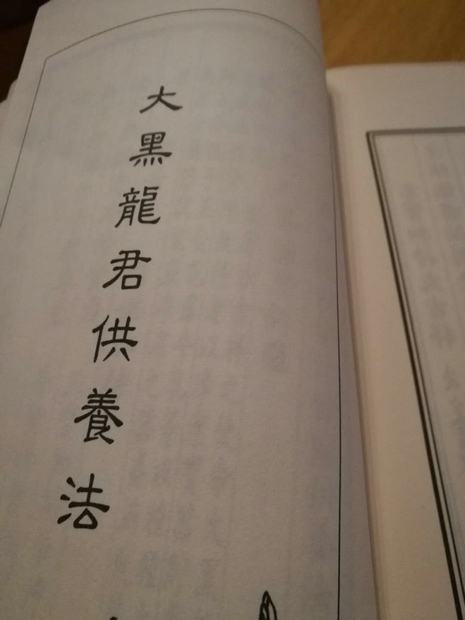 大黑龍君供養法